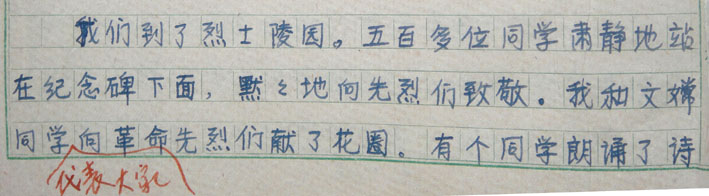 我们到了烈士陵园。五百多位同学肃静地站
在纪念碑下面，默々地向先烈们致敬。我和文嫦
同学向革命先烈们献了花圈。有个同学朗诵了诗
代表大家